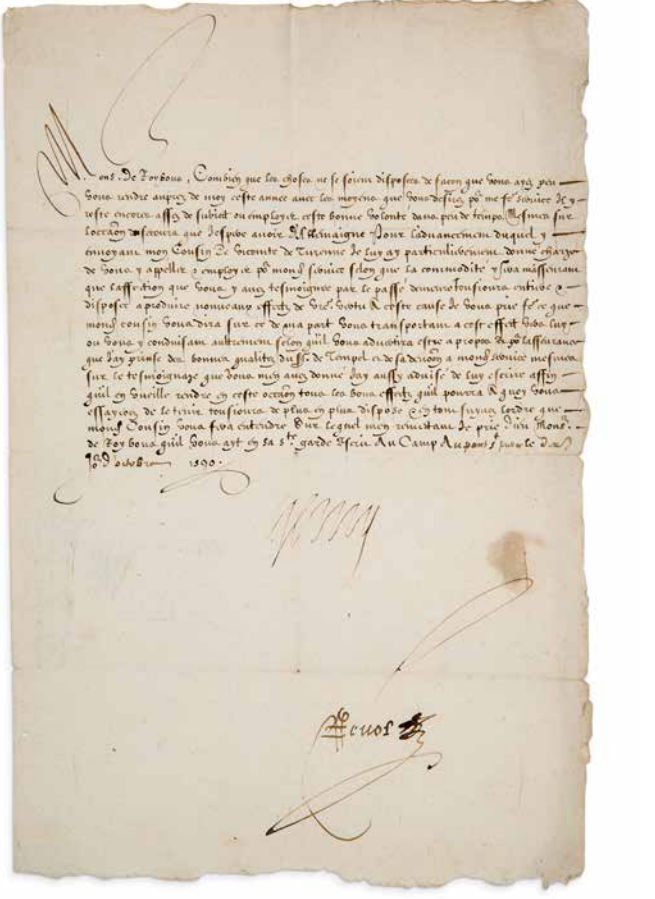 Mons. De Roybous, Combien que les choses ne se soient disposees de facon que vous ayez peu
vous rendre aupres de moy ceste annee avec les moyens que vous desiriez po.r me fe.e service Il y
reste encores assez de subiect ou employer ceste bonne volonte dans peu de temps Mesmes sur
loccaõn du secours que Jespere avoir Dallemaigne Pour ladvancement duquel y
envoyant mon Cousin Le Viconte de Turenne Je luy ay particulierement donne charge
de vous y appeller & employer po.r mond. service selon que la commodite y sera massseurant
que laffection que vous y avez tesmoignee par le passe demeure tousiours entiere &
disposee a produire nouveaux effectz de vr̃e vertu A ceste cause Je vous prie fe.e ce que
mond. cousin vous dira sur ce de ma part vous transportant a cest effect vers luy
ou vous y conduisant aultrement selon quil vous advertira estre a propos Et po.r lasseurance
que Jay prinse des bonnes qualitez du S.r de Tempel et de sa devoõn a mond. service mesmes
sur le tesmoignage que vous men avez donne Jay aussy advise de luy escrire affin
quil en vueille rendre en ceste occaõn tous les bons effectz quil pourra A quoy vous
essayerez de le tenir tousiours de plus en plus dispose & en tout suyvre lordre que
mond. Cousin vous fera entendre Sur lequel men remettant Je prie Dieu Mons.r
de Roybous quil vous ayt en sa s.te garde Escrit Au Camp Au pont S.t pierre le
d'octobre 1590.
Henry
Revol